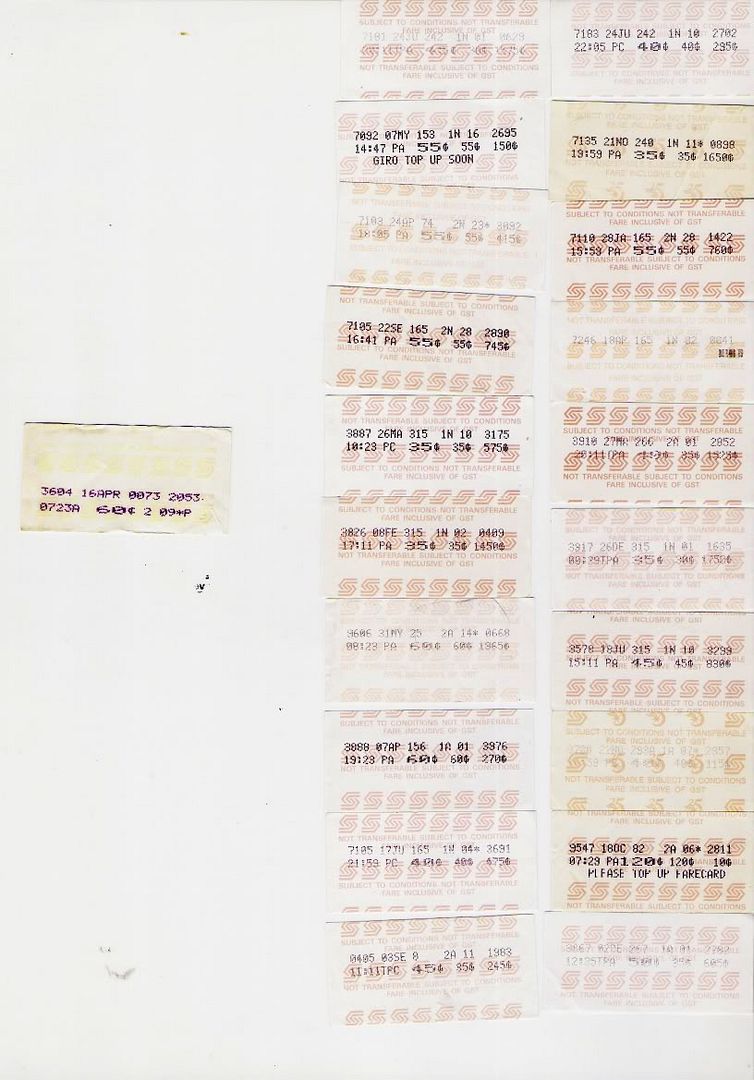 3604 16APR 0073 2053
0723A 60¢ 2 09*P
SUBJECT TO CONDITIONS NOT TRANSFERABLE
FARE INCLUSIVE OF GST
7181 24JU 242 1N 01 0629
NOT TRANSFERABLE SUBJECT TO CONDITIONS
FARE INCLUSIVE OF GST
7092 07MY 153 1N 16 2695
14:47 PA 55¢ 55¢ 150¢
GIRO TOP UP SOON
7103 24AP 74 2N 23* 3092
18:05 PA 55¢ 55¢ 415¢
NOT TRANSFERABLE SUBJECT TO CONDITIONS
FARE INCLUSIVE OF GST
7105 22SE 165 2N 28 2890
16:41 PA 55¢ 55¢ 745¢
SUBJECT TO CONDITIONS NOT TRANSFERABLE
FARE INCLUSIVE OF GST
NOT TRANSFERABLE SUBJECT TO CONDITIONS
FARE INCLUSIVE OF GST
3887 26MA 315 1N 10 3175
10:23 PC 35¢ 35¢ 575¢
SUBJECT TO CONDITIONS NOT TRANSFERABLE
FARE INCLUSIVE OF GST
NOT TRANSFERABLE SUBJECT TO CONDITIONS
FARE INCLUSIVE OF GST
3826 08FE 315 1N 02 0409
17:11 PA 35¢ 35¢ 1450¢
SUBJECT TO CONDITIONS NOT TRANSFERABLE
FARE INCLUSIVE OF GST
9606 31MY 25 2A 14* 0668
08:23 PA 60¢ 60¢ 1365¢
SUBJECT TO CONDITIONS NOT TRANSFERABLE
FARE INCLUSIVE OF GST
3888 07AP 156 1A 01 3976
19:23 PA 60¢ 60¢ 270¢
NOT TRANSFERABLE SUBJECT TO CONDITIONS
FARE INCLUSIVE OF GST
7105 17JU 165 1N 04* 3691
21:59 PC 40¢ 40¢ 675¢
SUBJECT TO CONDITIONS NOT TRANSFERABLE
FARE INCLUSIVE OF GST
0405 03SE 8 2A 11 1983
11:11TPC 45¢ 85¢ 245¢
NOT TRANSFERABLE SUBJECT TO CONDITIONS
FARE INCLUSIVE OF GST
7183 24JU 242 1N 10 2702
22:05 PC 40¢ 40¢ 295¢
SUBJECT TO CONDITIONS NOT TRANSFERABLE
FARE INCLUSIVE OF GST
7135 21NO 240 1N 11* 0898
19:59 PA 35¢ 35¢ 1650¢
FARE INCLUSIVE OF GST
SUBJECT TO CONDITIONS NOT TRANSFERABLE
FARE INCLUSIVE OF GST
7110 28JA 165 2N 28 1422
15:59 PA 55¢ 55¢ 760¢
NOT TRANSFERABLE SUBJECT TO CONDITIONS
FARE INCLUSIVE OF GST
7246 18AP 165 1N 02 0041
SUBJECT TO CONDITIONS NOT TRANSFERABLE
FARE INCLUSIVE OF GST
3910 27MA 266 2A 01 2852
NOT TRANSFERABLE SUBJECT TO CONDITIONS
FARE INCLUSIVE OF GST
3917 26DE 315 1N 01 1635
SUBJECT TO CONDITIONS NOT TRANSFERABLE
FARE INCLUSIVE OF GST
3578 18JU 315 1N 10 3299
15:11 PA 45¢ 45¢ 830¢
NOT TRANSFERABLE SUBJECT TO CONDITIONS
FARE INCLUSIVE OF GST
NOT TRANSFERABLE SUBJECT TO CONDITIONS
FARE INCLUSIVE OF GST
9547 18OC 82 2A 06* 2811
07:29 PA120¢ 120¢ 10¢
PLEASE TOP UP FARECARD
NOT TRANSFERABLE SUBJECT TO CONDITIONS
NOT TRANSFERABLE SUBJECT TO CONDITIONS
FARE INCLUSIVE OF GST